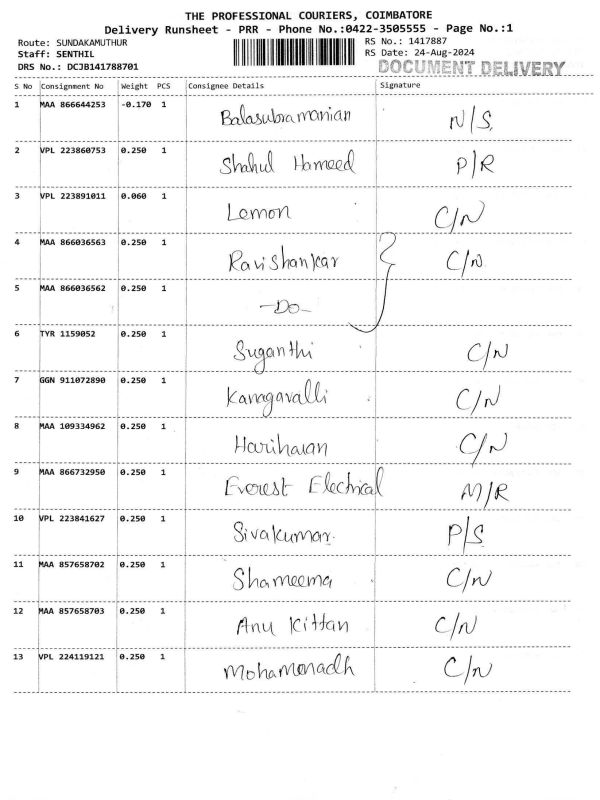 THE PROFESSIONAL COURIERS, COIMBATORE
Delivery Runsheet - PRR - Phone No.:0422-3505555 - Page No.:1
Route: SUNDAKAMUTHUR RS No.: 1417887
Staff: SENTHIL RS Date: 24-Aug-2024
DRS No.: DCJB141788701 DOCUMENT DELIVERY
S No Consignment No Weight PCS Consignee Details Signature
1 MAA 866644253 -0.170 1 Balasubramanian N/S
2 VPL 223860753 0.250 1 Shahul Hameed P/R
3 VPL 223891011 0.060 1 Lemon C/N
4 MAA 866036563 0.250 1 Ravishankar C/N
5 MAA 866036562 0.250 1 -Do-
6 TYR 1159052 0.250 1 Suganthi C/N
7 GGN 911072890 0.250 1 Kanagavalli C/N
8 MAA 109334962 0.250 1 Hariharan C/N
9 MAA 866732950 0.250 1 Everest Electrical M/R
10 VPL 223841627 0.250 1 Sivakumar. P/S
11 MAA 857658702 0.250 1 Shameema C/N
12 MAA 857658703 0.250 1 Anu Kittan C/N
13 VPL 224119121 0.250 1 Mohamonadh C/N